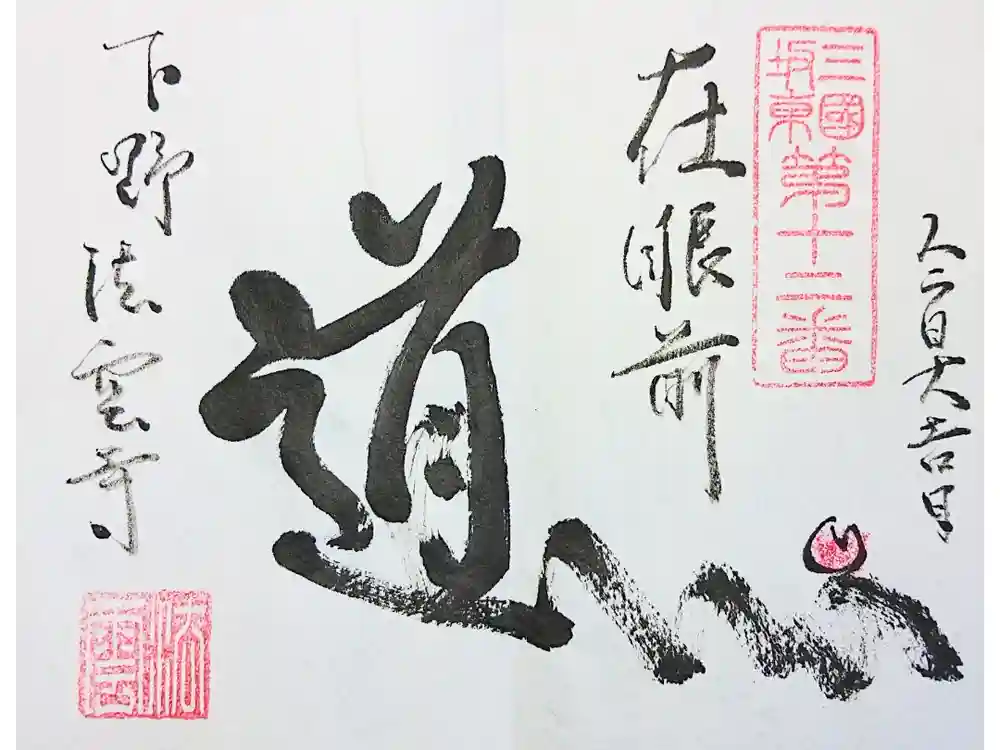 大吉日
三國
坂東
第十二番
在眼前
道
下野法雲寺
法雲